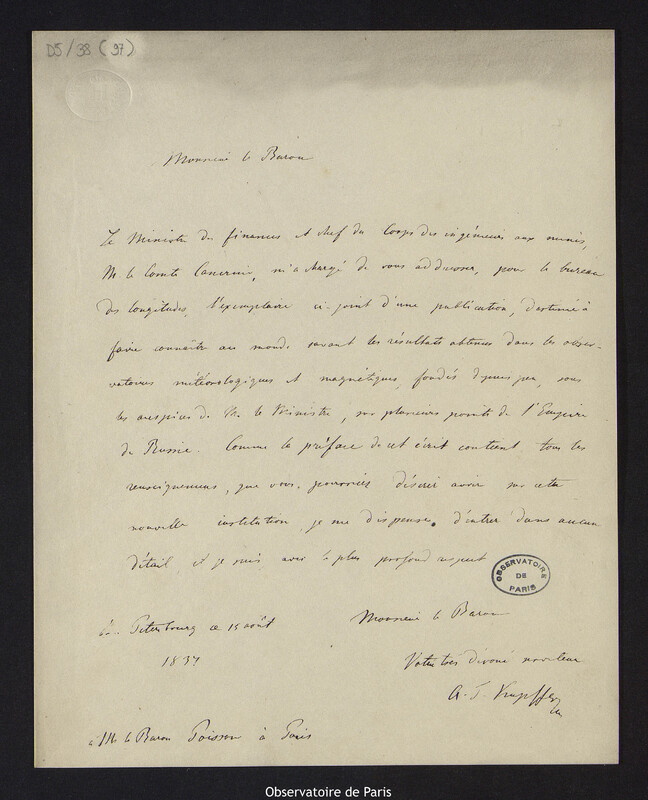 D5/38 (97)
Monsieur le Baron
Le Ministre des finances et chef du Corps des ingénieurs aux mines,
M. le Comte Cancrin, m'a chargé de vous addresser, pour le bureau
des longitudes, l'exemplaire ci-joint d'une publication, destinée à
faire connaître au monde savant les résultats obtenus dans les obser-
vatoires météorologiques et magnétiques, fondés depuis peu, sous
les auspices de M. le Ministre, sur plusieurs points de l'Empire
de Russie. Comme la préface de cet écrit contient tous les
renseignemens, que vous pourriez désirer avoir sur cette
nouvelle institution, je me dispense d'entrer dans aucun
détail et je suis avec le plus profond respect
OBSERVATOIRE DE PARIS
Monsieur le Baron
St. Petersbourg ce 15 août
1837
Votre très dévoué serviteur
A. T. Kupffer
à M. le Baron Poisson à Paris
Observatoire de Paris